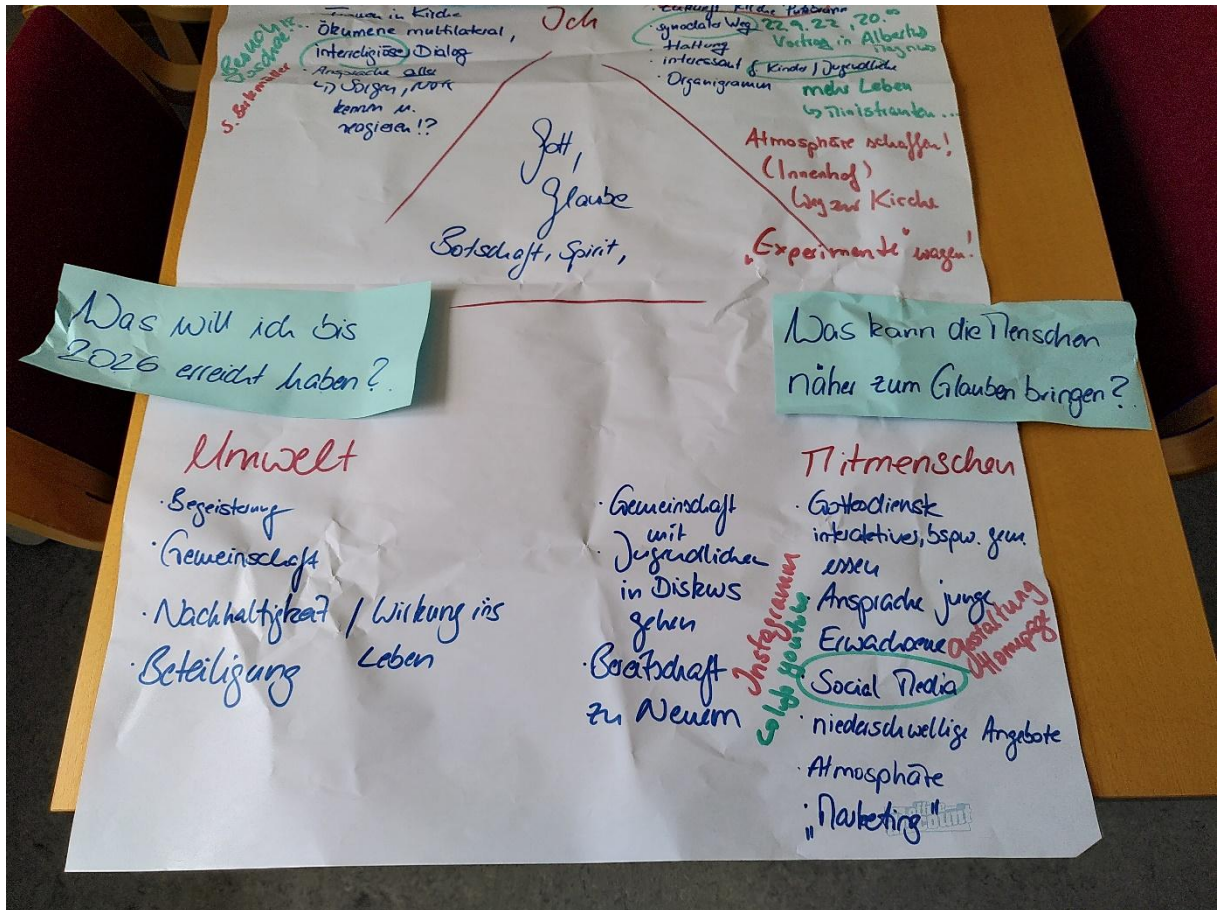 Frauen in Kirche
Ökumene multilateral,
interreligiöse Dialog
· Ansprache aller
↳ Sorgen, Nöte
kennen u.
reagieren!?
Besuch
Moschee
Ich
synodaler Weg 22.9.22, 20.00
Vortrag in Albertus
Magnus
· Haltung
· interessant f. Kinder / Jugendliche
· Organigramm
mehr Leben
↳ Ministranten...
Atmosphäre schaffen!
(Innenhof)
Weg zur Kirche
„Experimente" wagen!
Gott,
Glaube
Botschaft, Spirit,
Was will ich bis
2026 erreicht haben?
Was kann die Menschen
näher zum Glauben bringen?
Umwelt
· Begeisterung
· Gemeinschaft
· Nachhaltigkeit / Wirkung ins
Leben
· Beteiligung
· Gemeinschaft
mit
· Jugendlichen
in Diskurs
gehen
· Bereitschaft
zu Neuem
Mitmenschen
· Gottesdienste
interaktives, bspw. gem.
essen
· Ansprache junge
Erwachsene
Gestaltung
Homepage
· Social Media
Instagramm
youtube
· niederschwellige Angebote
· Atmosphäre
· „Marketing"